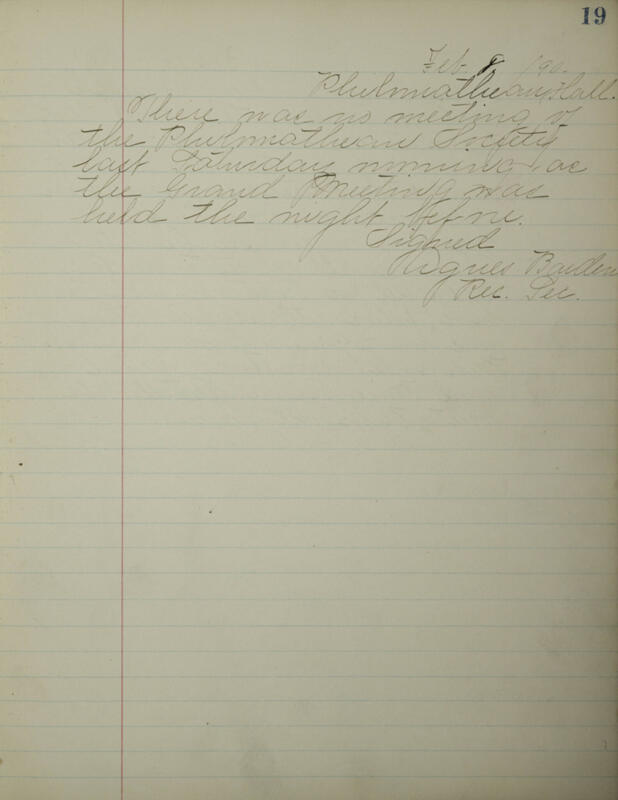 19
Feb. 8 190.
Philomathean Hall.
There was no meeting of
the Philomathean Society
last Saturday morning, as
the Grand Meeting was
held the night before.
Signed
Agnes Barden
Rec. Sec.